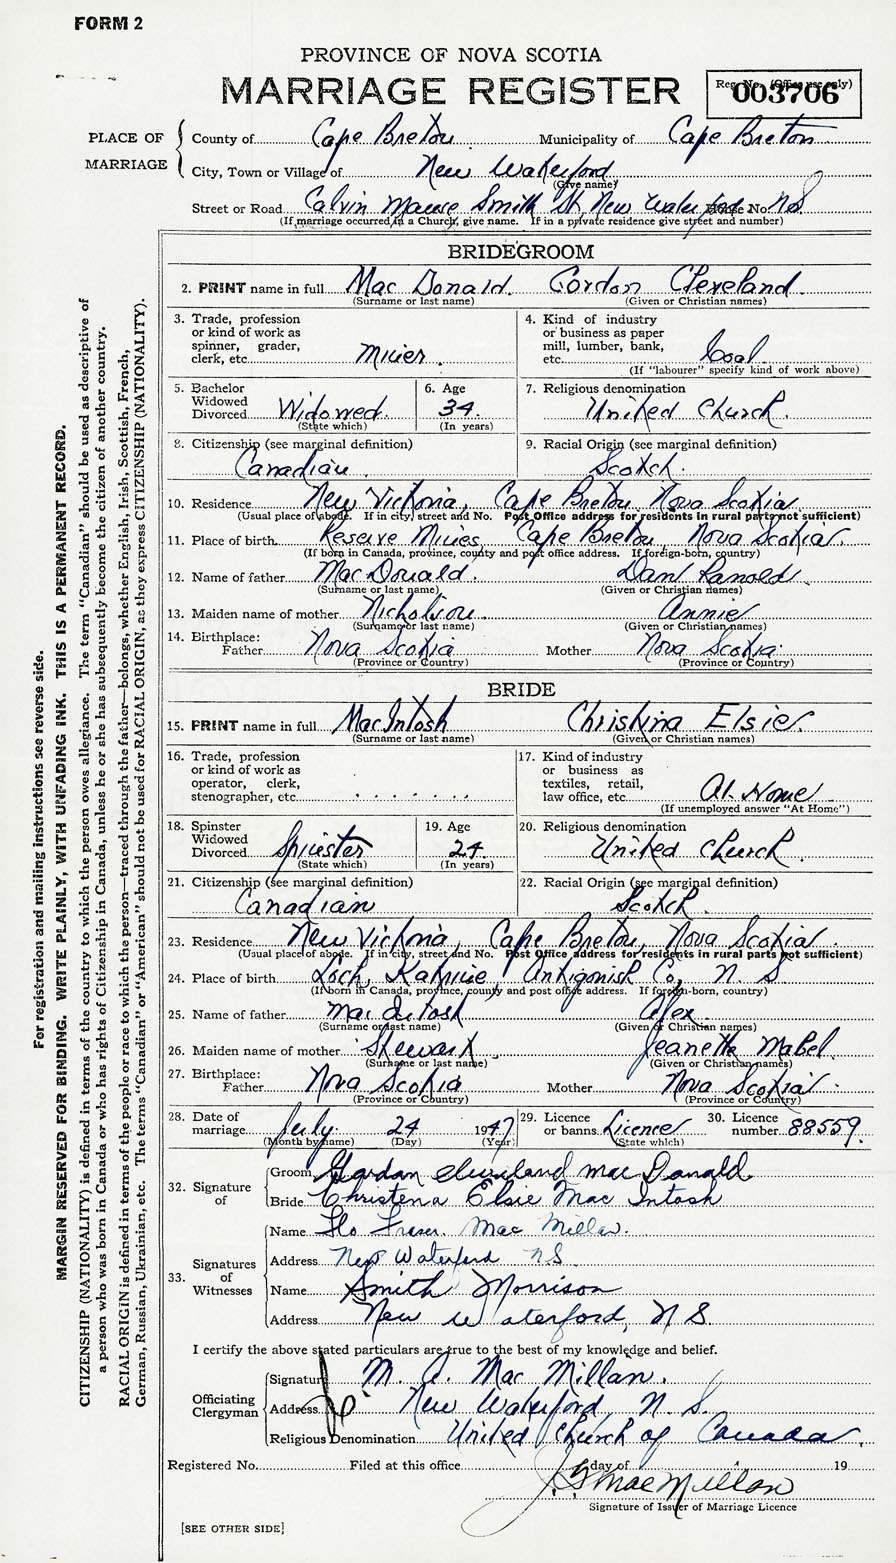 FORM 2
PROVINCE OF NOVA SCOTIA
MARRIAGE REGISTER
Reg. No. (Office use only)
003706
PLACE OF MARRIAGE
County of Cape Breton Municipality of Cape Breton
City, Town or Village of New Waterford
(Give name)
Street or Road Calvin Manse Smith St, New Waterford House No. N.S
(If marriage occurred in a Church, give name. If in a private residence give street and number)
BRIDEGROOM
2. PRINT name in full Mac Donald. Gordon Cleveland.
(Surname or last name) (Given or Christian names)
3. Trade, profession or kind of work as spinner, grader, clerk, etc. Miner.
4. Kind of industry or business as paper mill, lumber, bank, etc. Coal
(If "labourer" specify kind of work above)
5. Bachelor Widowed Divorced Widowed.
(State which)
6. Age 34.
(In years)
7. Religious denomination United Church.
8. Citizenship (see marginal definition) Canadian.
9. Racial Origin (see marginal definition) Scotch.
10. Residence New Victoria, Cape Breton, Nova Scotia
(Usual place of abode. If in city, street and No. Post Office address for residents in rural parts not sufficient)
11. Place of birth. Reserve Mines, Cape Breton, Nova Scotia.
(If born in Canada, province, county and post office address. If foreign-born, country)
12. Name of father MacDonald. Dan Ranold.
(Surname or last name) (Given or Christian names)
13. Maiden name of mother Nicholson. Annie
(Surname or last name) (Given or Christian names)
14. Birthplace:
Father Nova Scotia Mother Nova Scotia.
(Province or Country) (Province or Country)
BRIDE
15. PRINT name in full MacIntosh Christina Elsie.
(Surname or last name) (Given or Christian names)
16. Trade, profession or kind of work as operator, clerk, stenographer, etc.
17. Kind of industry or business as textiles, retail, law office, etc. At Home
(If unemployed answer "At Home")
18. Spinster Widowed Divorced Spinster
(State which)
19. Age 24.
(In years)
20. Religious denomination United Church.
21. Citizenship (see marginal definition) Canadian
22. Racial Origin (see marginal definition) Scotch.
23. Residence New Victoria, Cape Breton, Nova Scotia
(Usual place of abode. If in city, street and No. Post Office address for residents in rural parts not sufficient)
24. Place of birth Loch, Katrine, Antigonish Co, N. S
(If born in Canada, province, county and post office address. If foreign-born, country)
25. Name of father MacIntosh Alex.
(Surname or last name) (Given or Christian names)
26. Maiden name of mother Stewart. Jeanette Mabel
(Surname or last name) (Given or Christian names)
27. Birthplace:
Father Nova Scotia Mother Nova Scotia.
(Province or Country) (Province or Country)
28. Date of marriage July. 24 1947
(Month by name) (Day) (Year)
29. Licence or banns. Licence
(State which)
30. Licence number 88559.
32. Signature of
Groom Gordon Cleveland MacDonald
Bride Christena Elsie Mac Intosh
33. Signatures of Witnesses
Name Flo Fraser. Mac Millan.
Address New Waterford N.S.
Name Smith Morrison
Address New Waterford, N S
I certify the above stated particulars are true to the best of my knowledge and belief.
Officiating Clergyman
Signature M. A. Mac Millan.
Address New Waterford, N. S.
Religious Denomination United Church of Canada.
Registered No. Filed at this office day of 19
J. G MacMillan
Signature of Issuer of Marriage Licence
[SEE OTHER SIDE]
For registration and mailing instructions see reverse side.
MARGIN RESERVED FOR BINDING. WRITE PLAINLY, WITH UNFADING INK. THIS IS A PERMANENT RECORD.
CITIZENSHIP (NATIONALITY) is defined in terms of the country to which the person owes allegiance. The term "Canadian" should be used as descriptive of
a person who was born in Canada or who has rights of Citizenship in Canada, unless he or she has subsequently become the citizen of another country.
RACIAL ORIGIN is defined in terms of the people or race to which the person—traced through the father—belongs, whether English, Irish, Scottish, French,
German, Russian, Ukrainian, etc. The terms "Canadian" or "American" should not be used for RACIAL ORIGIN, as they express CITIZENSHIP (NATIONALITY).